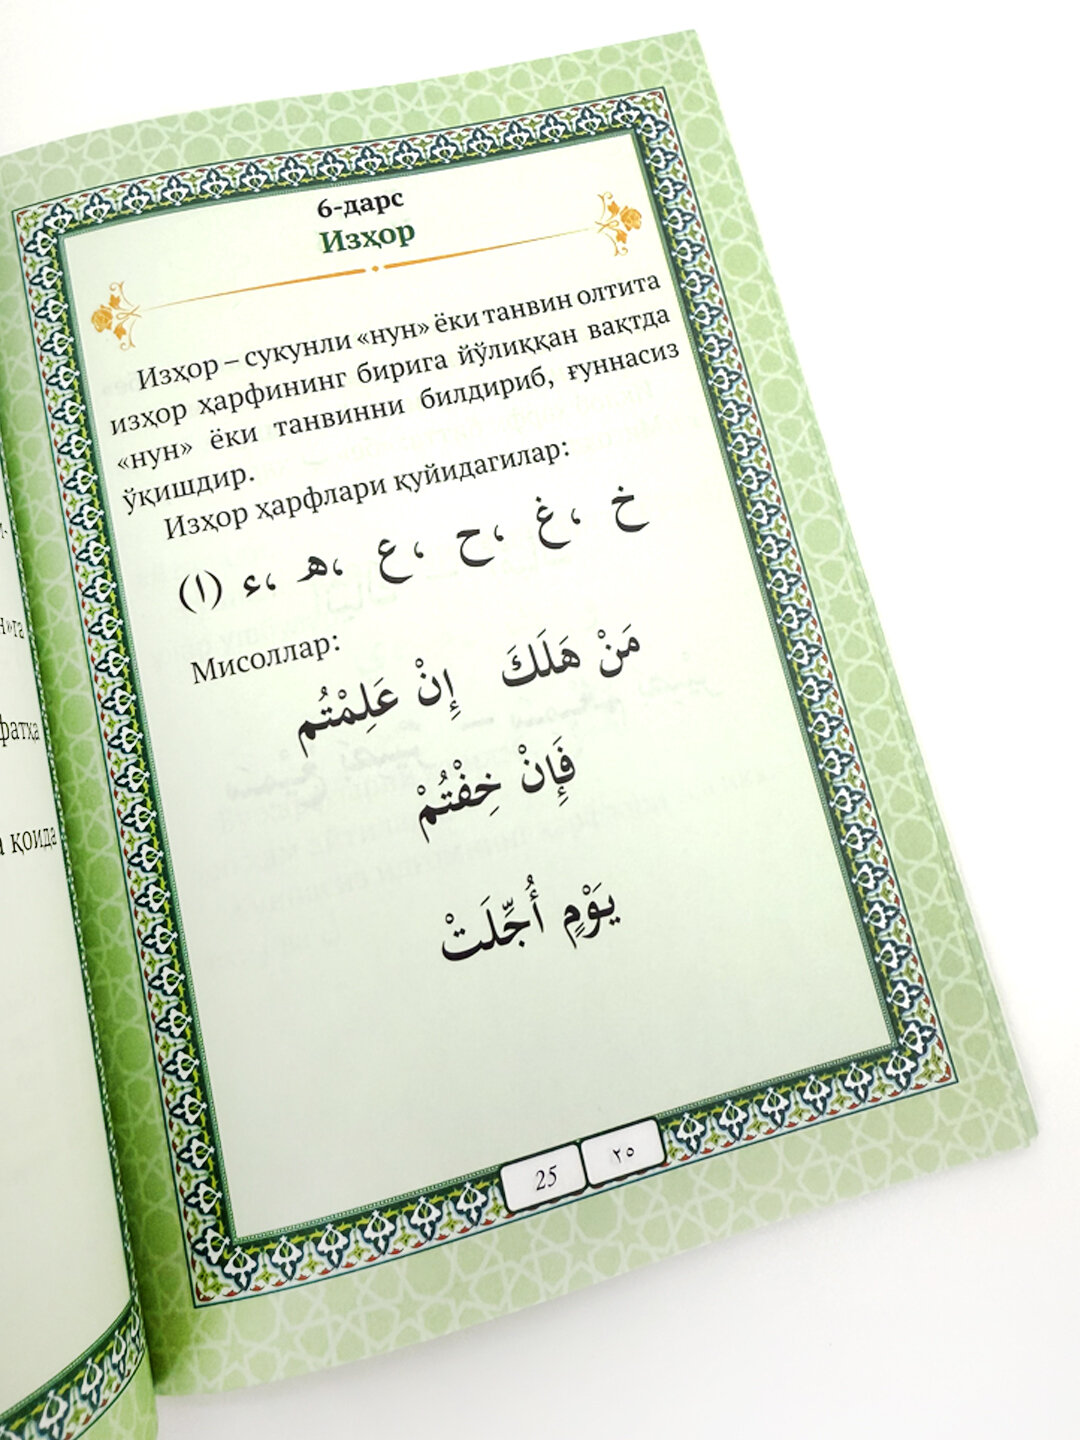 6-дарс
Изҳор
Изҳор – сукунли «нун» ёки танвин олтита
изҳор ҳарфининг бирига йўлиққан вақтда
«нун» ёки танвинни билдириб, ғуннасиз
ўқишдир.
Изҳор ҳарфлари қуйидагилар:
خ ،غ ،ح ،ع ،ه ،ء (ا)
Мисоллар:
مَنْ هَلَكَ إِنْ عَلِمْتُم
فَإِنْ خِفْتُمْ
يَوْمٍ أُجِّلَتْ
25 ٢٥
фатҳа
қоида